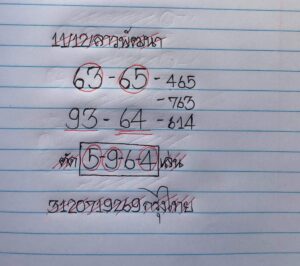 11/12/ลาวพัฒนา
63-65-465
-763
93-64-614
คัด 5-9-6-4 เน้น
3120719269 กรุงไทย